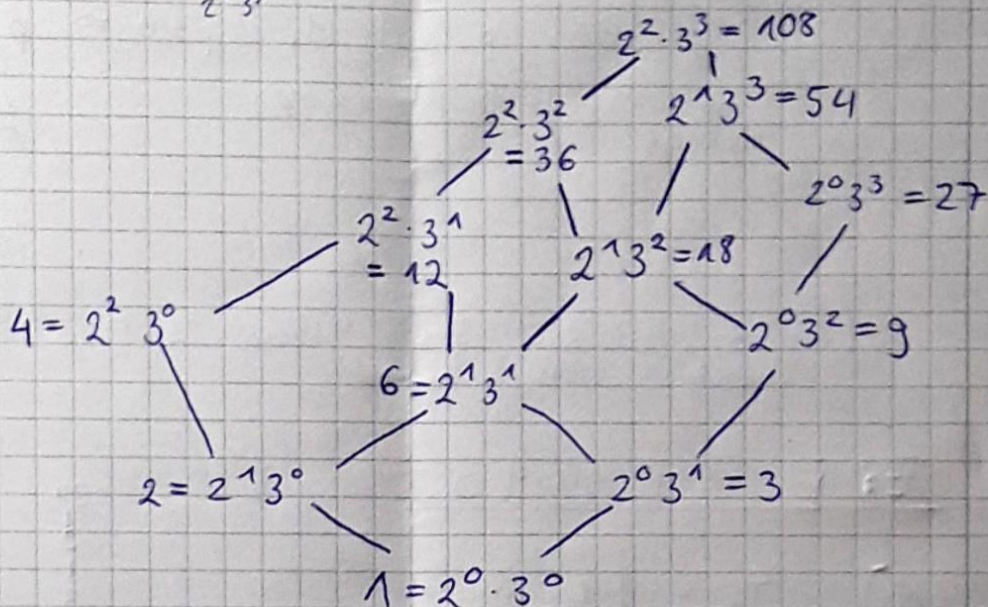 2² · 3³ = 108
2¹ 3³ = 54
2² · 3²
= 36
2⁰ 3³ = 27
2² · 3¹
= 12
2¹ 3² = 18
4 = 2² 3⁰
2⁰ 3² = 9
6 = 2¹ 3¹
2 = 2¹ 3⁰
2⁰ 3¹ = 3
1 = 2⁰ · 3⁰